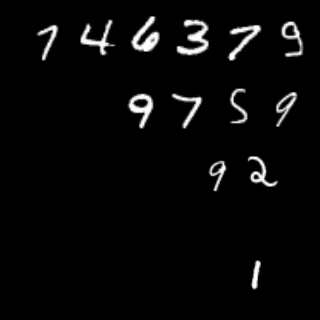 746379
9759
92
1